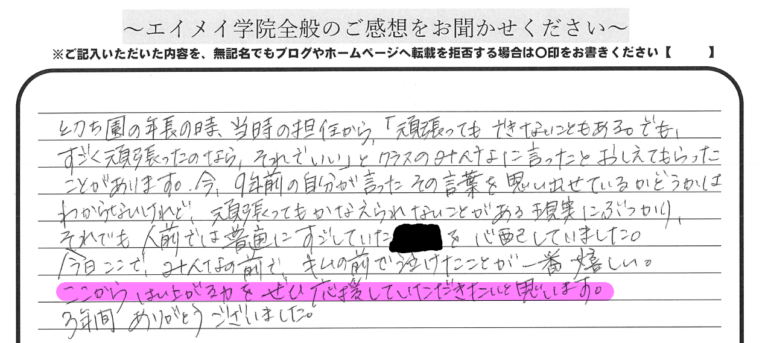 ～エイメイ学院全般のご感想をお聞かせください～
※ご記入いただいた内容を、無記名でもブログやホームページへ転載を拒否する場合は〇印をお書きください【　　】
幼ち園の年長の時、当時の担任から、「頑張ってもできないこともある。でも、
すごく頑張ったのなら、それでいい」とクラスのみんなに言ったとおしえてもらった
ことがあります。今、9年前の自分が言ったその言葉を思い出せているかどうかは
わからないけれど、頑張ってもかなえられないことがある現実にぶつかり、
それでも人前では普通にすごしていた を心配していました。
今日ここで、みんなの前で、 の前で泣けたことが一番嬉しい。
ここからはい上がる力をぜひ応援していただきたいと思います。
3年間ありがとうございました。